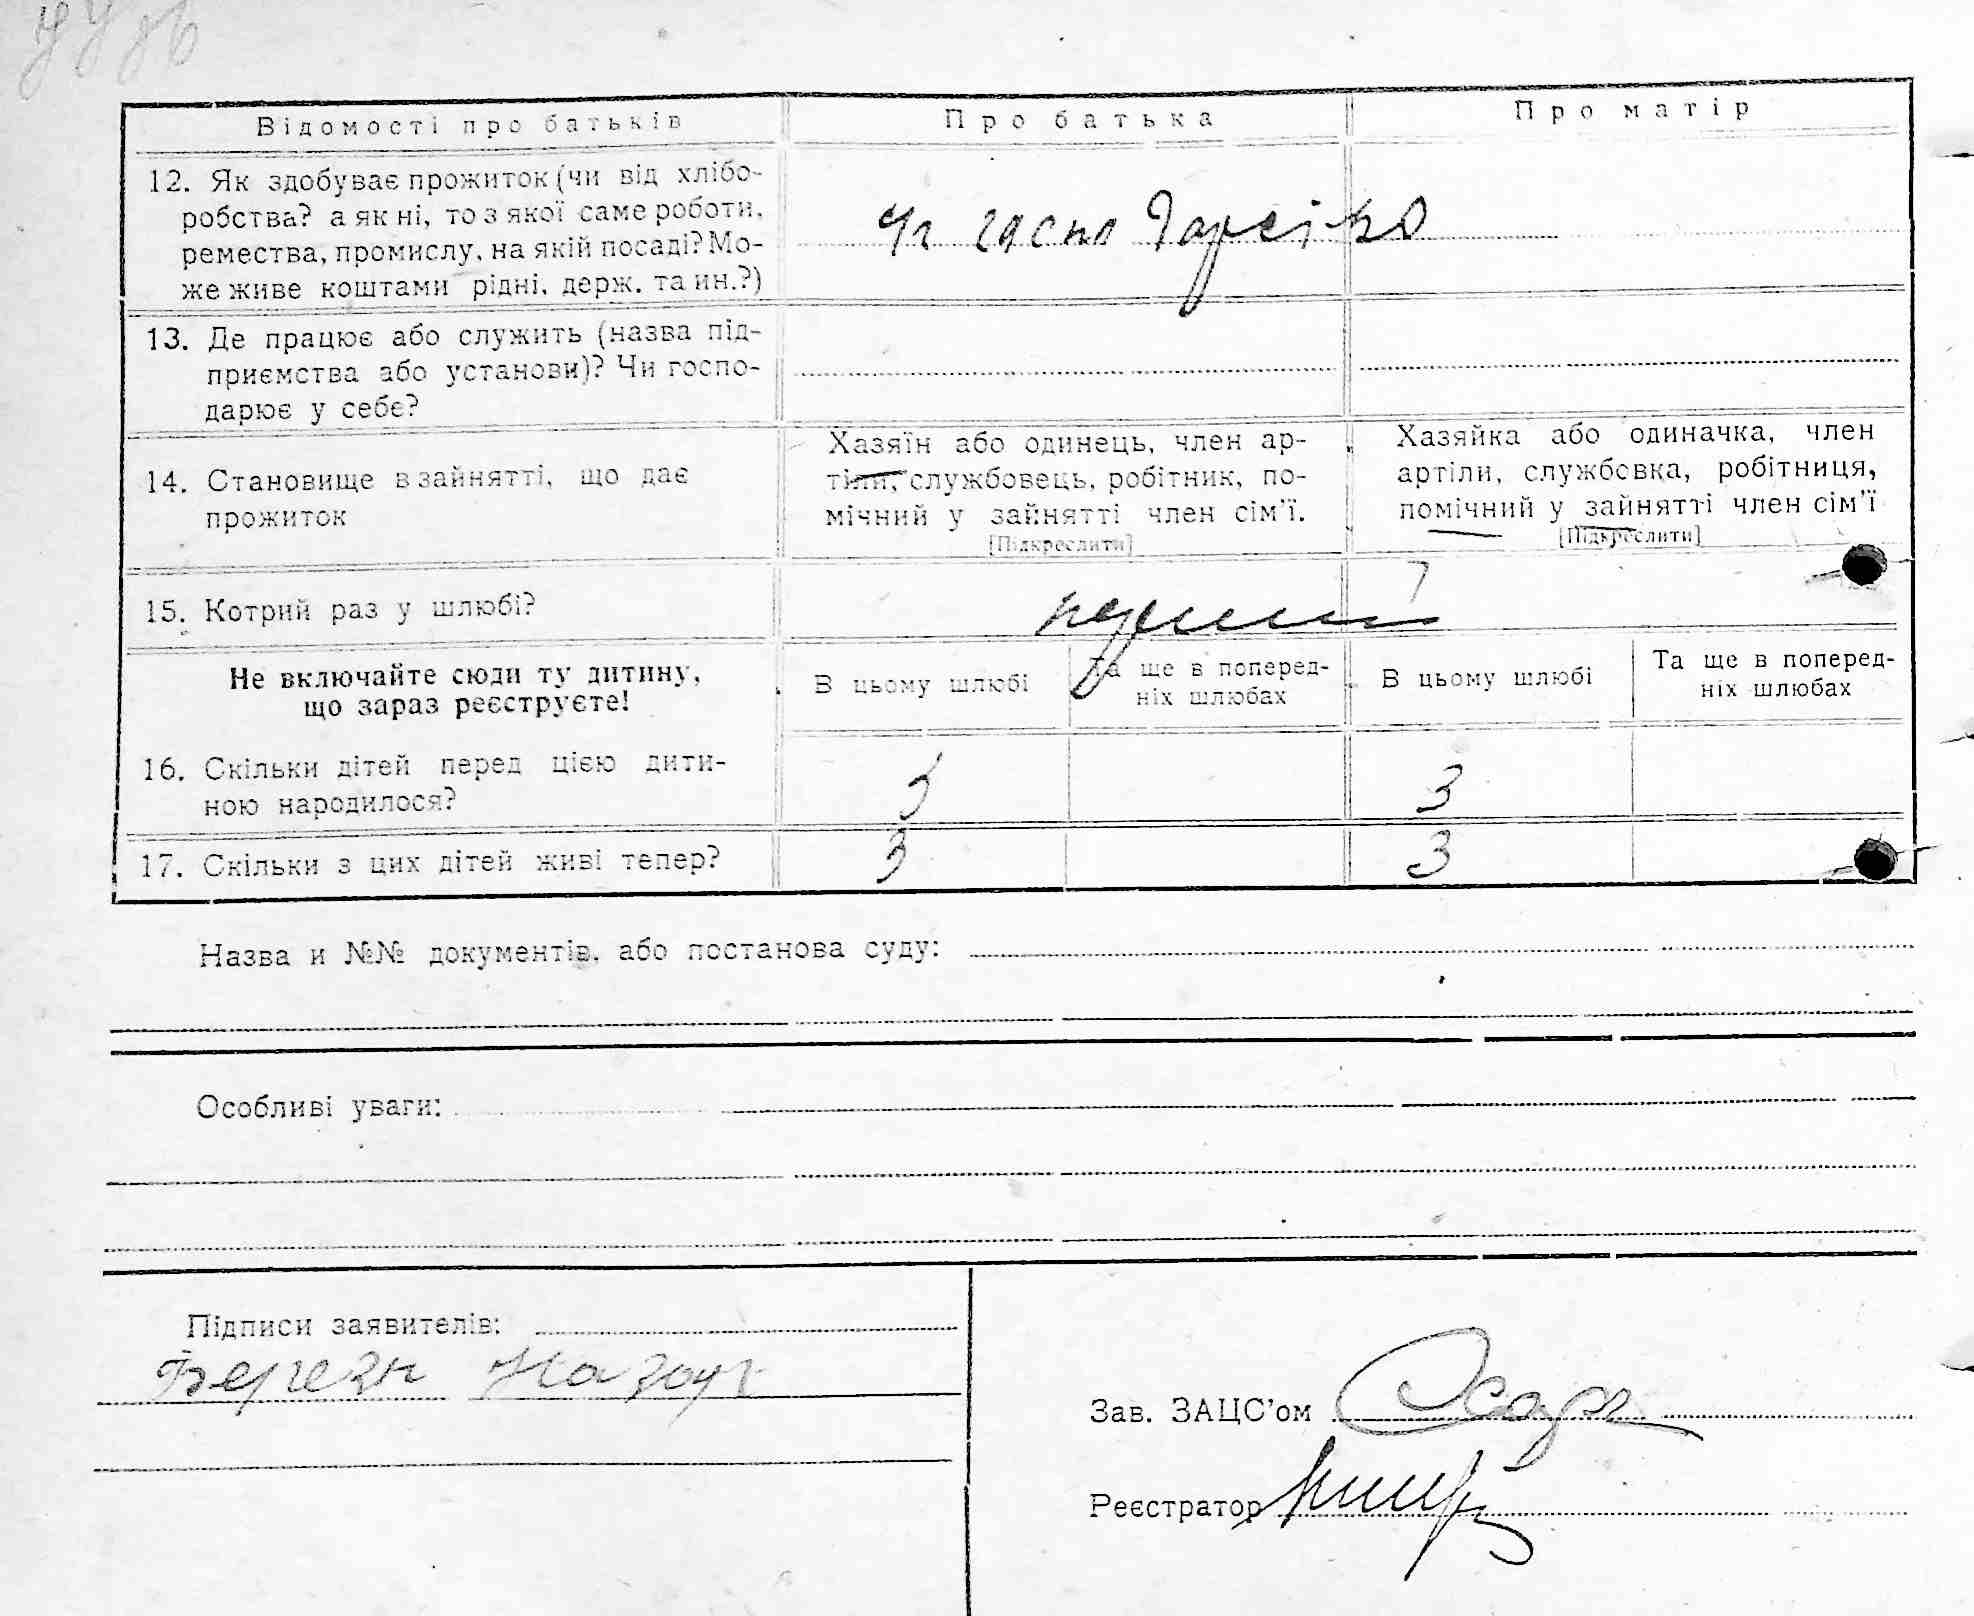 Відомості про батьків
Про батька
Про матір
12. Як здобуває прожиток (чи від хлібо-
робства? а як ні, то з якої саме роботи,
ремества, промислу, на якій посаді? Мо-
же живе коштами рідні, держ. та ин.?)
13. Де працює або служить (назва під-
приємства або установи)? Чи госпо-
дарює у себе?
14. Становище в зайнятті, що дає
прожиток
Хазяїн або одинець, член ар-
тіли, службовець, робітник, по-
мічний у зайнятті член сім'ї.
[Підкреслити]
Хазяйка або одиначка, член
артіли, службовка, робітниця,
помічний у зайнятті член сім'ї
[Підкреслити]
15. Котрий раз у шлюбі?
Не включайте сюди ту дитину,
що зараз реєструєте!
В цьому шлюбі
Та ще в поперед-
ніх шлюбах
В цьому шлюбі
Та ще в поперед-
ніх шлюбах
16. Скільки дітей перед цією дити-
ною народилося?
3
3
17. Скільки з цих дітей живі тепер?
3
3
Назва и №№ документів, або постанова суду:
Особливі уваги:
Підписи заявителів:
Зав. ЗАЦС'ом
Реєстратор